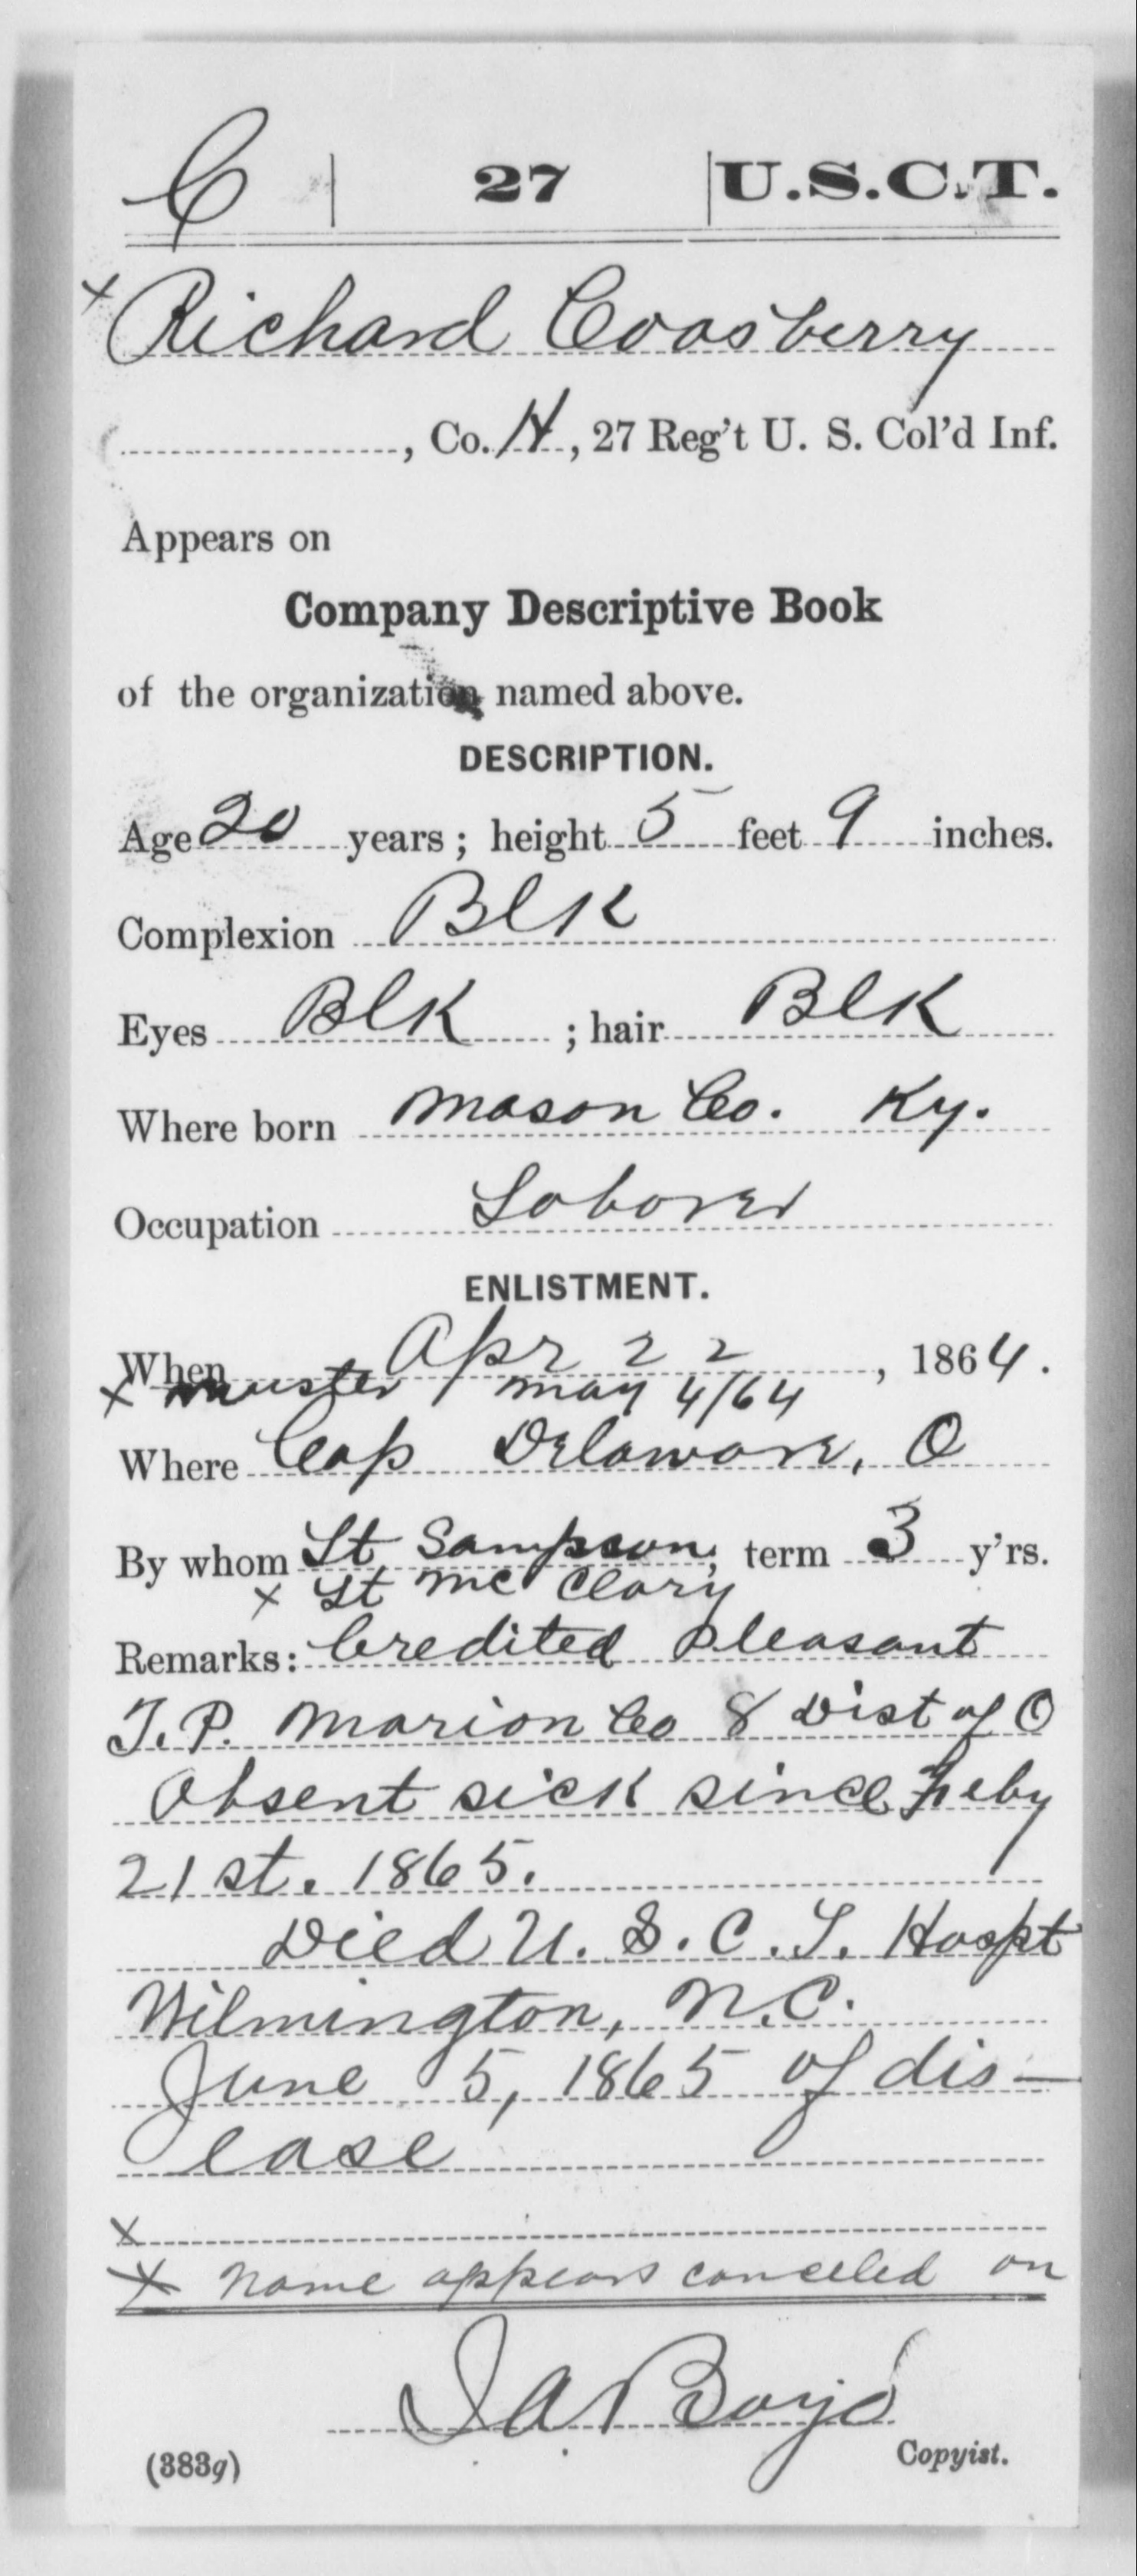 C | 27 | U.S.C.T.
x Richard Coasberry
, Co. H, 27 Reg't U. S. Col'd Inf.
Appears on
Company Descriptive Book
of the organization named above.
DESCRIPTION.
Age 20 years; height 5 feet 9 inches.
Complexion Blk
Eyes Blk ; hair Blk
Where born Mason Co. Ky.
Occupation Laborer
ENLISTMENT.
When Apr 22, 1864.
x muster May 4/64
Where Cap Delaware, O
By whom Lt Sampson; term 3 y'rs.
x Lt McClary
Remarks: Credited Pleasant
T.P. Marion Co 8 Dist of O
Absent sick since Feby
21st. 1865.
Died U. S. C. T. Hospt
Wilmington, N.C.
June 5, 1865 of dis-
ease
x
x Name appears canceled on
J A Boyd
(383g) Copyist.